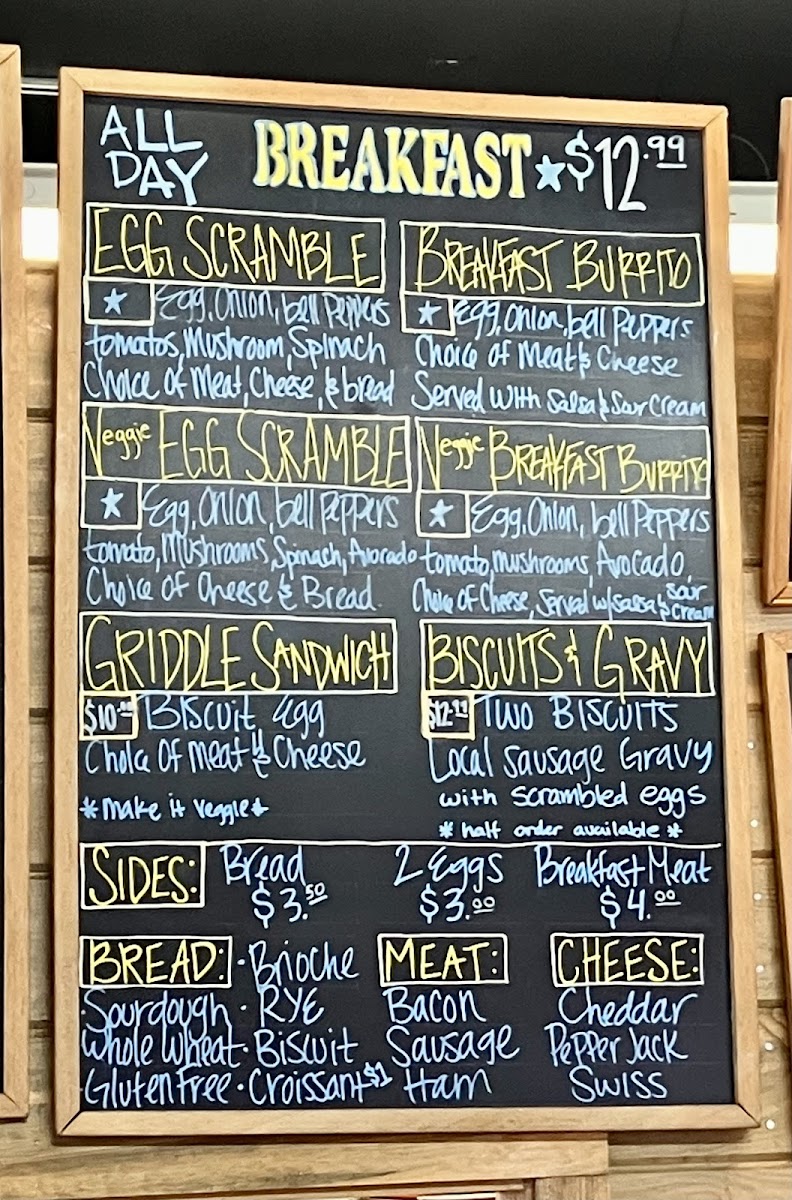 ALL DAY BREAKFAST ★ $12.99
EGG SCRAMBLE
★ Egg, Onion, bell Peppers
tomatos, Mushroom, Spinach
Choice Of Meat, Cheese, & bread
BREAKFAST BURRITO
★ Egg, Onion, bell Peppers
Choice Of Meat & Cheese
Served With Salsa & Sour Cream
Veggie EGG SCRAMBLE
★ Egg, Onion, bell Peppers
tomato, Mushrooms, Spinach, Avorado
Choice Of Cheese & Bread.
Veggie BREAKFAST BURRITO
★ Egg, Onion, bell Peppers
tomato, mushrooms, Avocado,
Choice Of Cheese, Served w/ salsa & sour cream
GRIDDLE SANDWICH
Biscuit Egg
Choice Of Meat & Cheese
*make it veggie*
BISCUITS & GRAVY
$12.99 Two BISCUITS
Local Sausage Gravy
with scrambled eggs
* half order available *
SIDES: Bread 2 Eggs Breakfast Meat
$3.50 $3.00 $4.00
BREAD: · Brioche
· Sourdough · RYE
Whole Wheat · Biscuit
· Gluten Free · Croissant $1
MEAT:
Bacon
Sausage
Ham
CHEESE:
Cheddar
Pepper Jack
Swiss